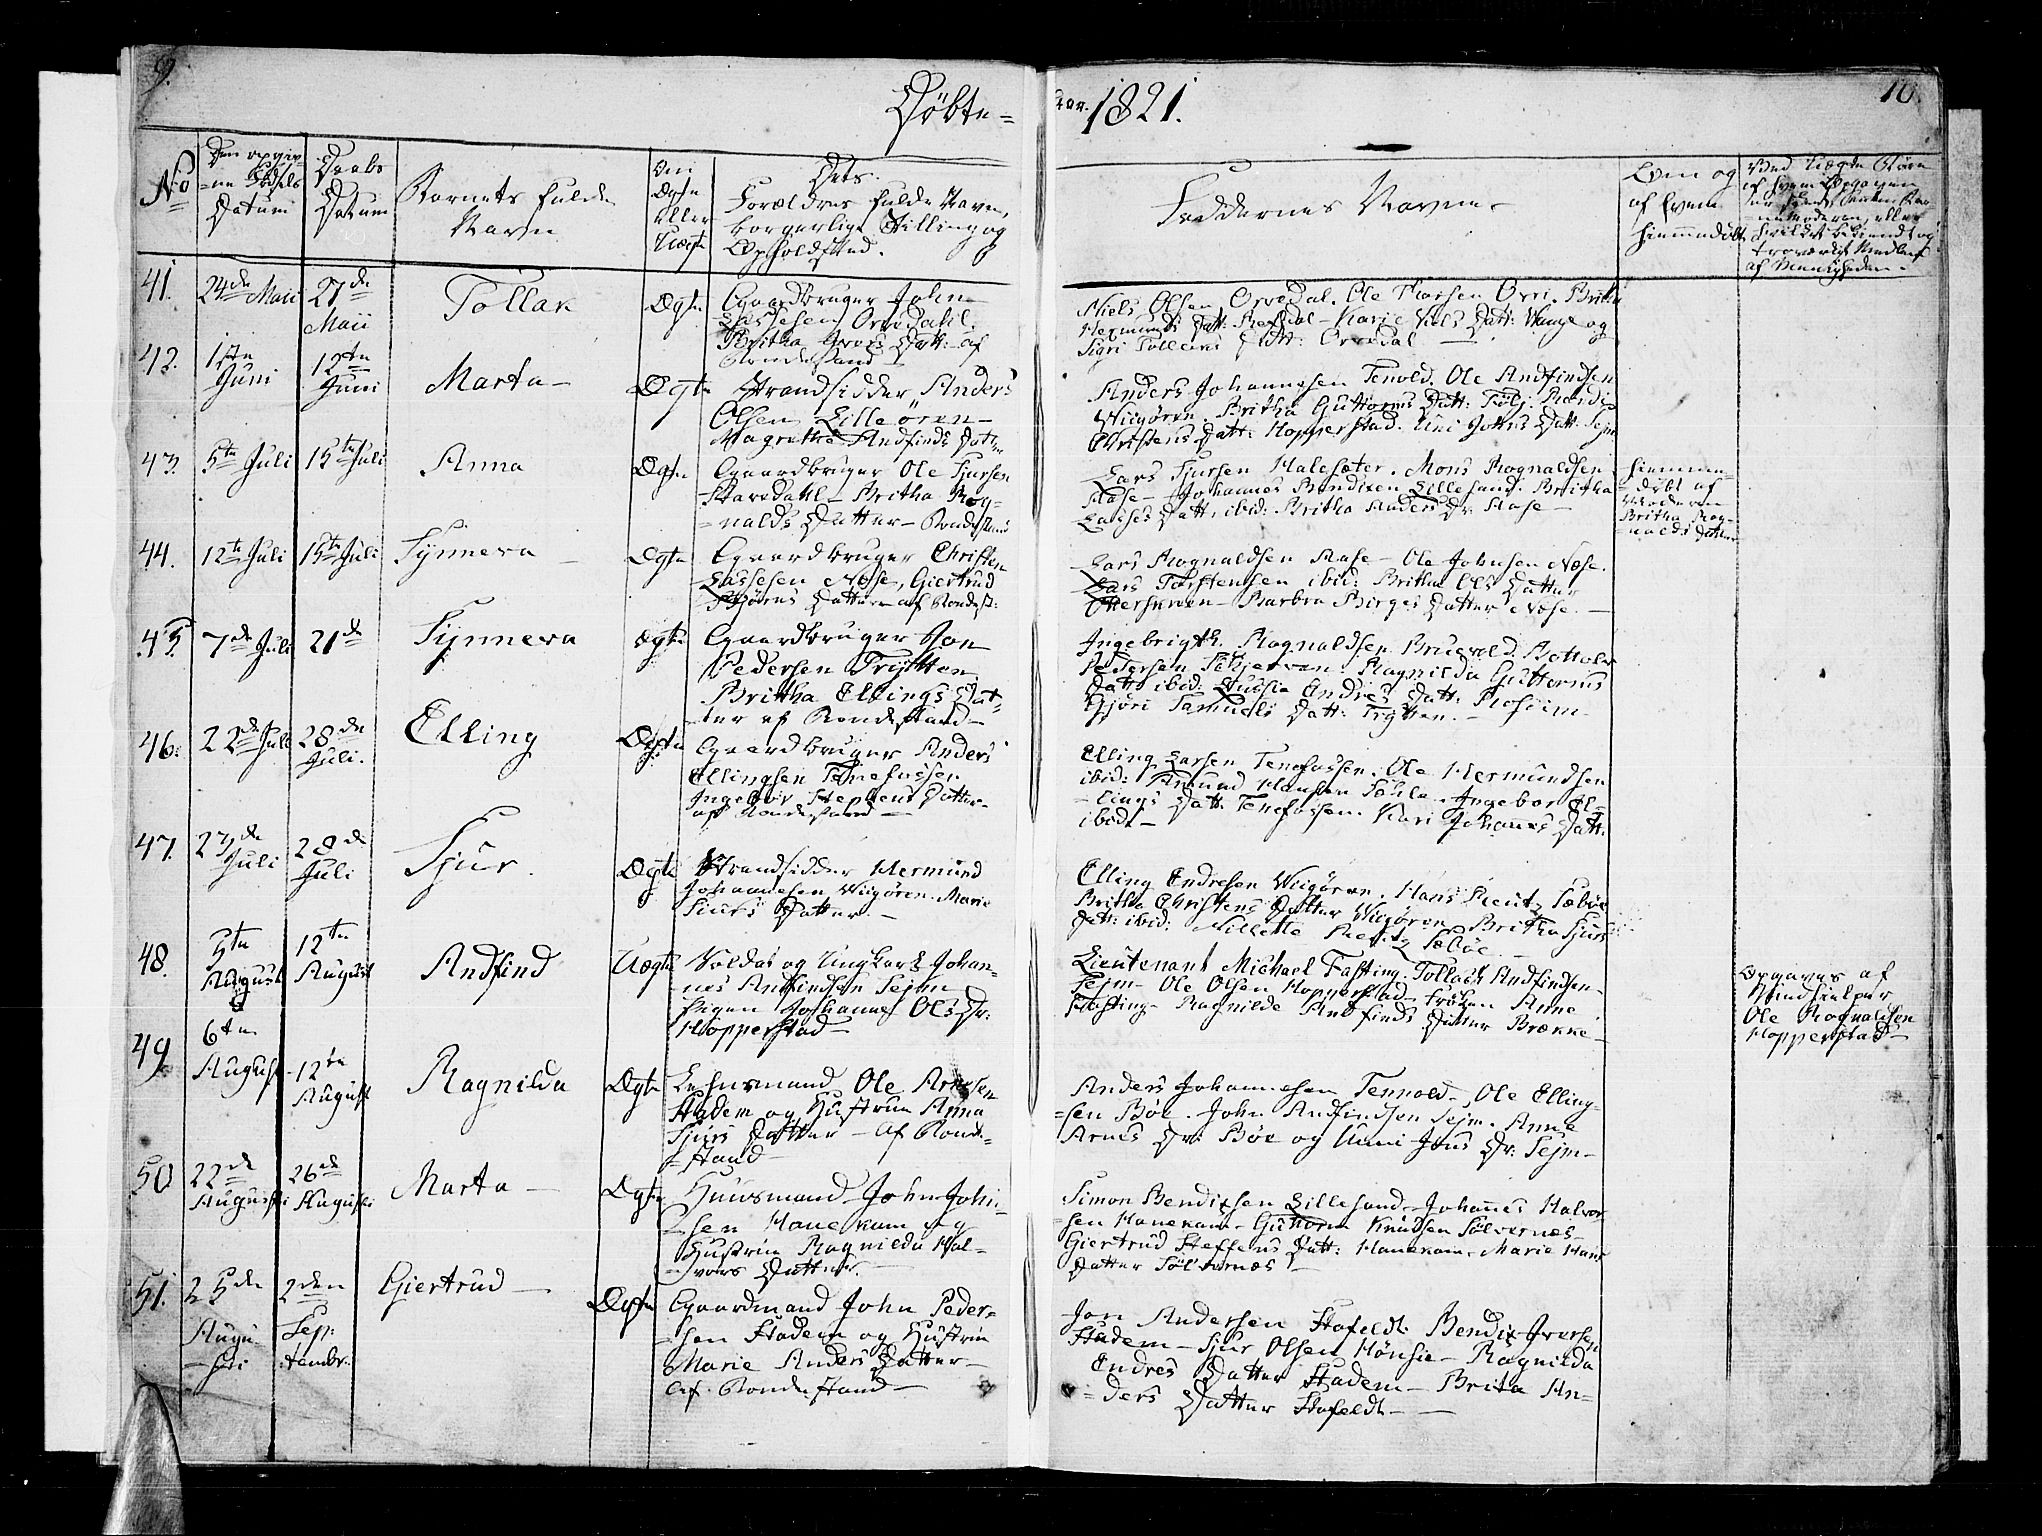 9.
Döbte=
Aar. 1821.
10.
No
Den opgiv=
=ne Fødsels
Datum
Daabs
Datum
Barnets fulde
Navn
Om
Ægte
eller
Uægte
Dets
Forældres fulde Navn,
borgerlige Stilling og
Opholdsted.
Faddernes Navne
Om og
af hvem
hiemmedøbt
41.
24de Maii
27de
Maii
Tollak
Ægte
Gaardbruger John
Lassesen Orvedahl
Britha Ivers Datt: af
Bondestand
Niels Olsen Orvedal. Ole Larsen Orri. Britha
Hermunds Datt: Refsdal - Karie Niels Datt: Wange og
Sigri Tollevs Datt: Orvedal
42.
1ste
Juni
12te
Juni
Marta
Ægte
Strandsidder Anders
Olsen Lilleören
Magrethe Andfinds Datter
Anders Johannesen Tenold. Ole Andfindsen
Wiigören. Britha Guttorms Datt:
Christens Datt: Hopperstad. Uni Jettus Datt: Sejm
43.
5te Juli
15te Juli
Anna
Ægte
Gaardbruger Ole Sjursen
Stavedahl - Britha Rog=
=nalds Datter - Bondestand
Lars Sjursen Halesæter. Mons Rognaldsen
Aase - Johannes Bendixen Lillesand. Britha
Lasses Datt. ibid: Britha Anders Dr. Aase
hiemme=
=døbt af
Moderen
Britha Rog=
=nalds Datter
44.
12te Juli
15te Juli
Synneva
Ægte
Gaardbruger Christen
Lassesen Næse, Giertrud
Bjørns Datter af Bondest:
Lars Rognaldsen Aase - Ole Johnsen Næse.
Lars Torstensen ibid: Britha Ols Datter
Ottersteen - Barbra Birges Datter Næse.
45.
7de Juli
21de
Synneva
Ægte
Gaardbruger Jon
Pedersen Trytten
Brittha Ellings Dat=
ter af Bondestand
Ingebrigth Rognaldsen Bruevold. Bottolv
Pedersen Skjerven. Ragnilda Guttorms
Datt: ibid: Andries Datt:
Gjöri Samuels Datt: Trytten.
46.
22de Juli
28de
Juli.
Elling
Ægte
Gaardbruger Anders
Ellingsen Tenefossen
Ingebör Stephens Datter
af Bondestand
Elling Larsen Tenefossen. Ole Hermundsen
ibid: Amund Hansen Ingebor El=
=lings Datt: Tenefossen. Kari Johannes Datt:
ibid.
47.
23de
Juli
28de
Juli
Sjur
Ægte
Strandsidder Hermund
Johannesen Wiigören. Marie
Siurs Datter.
Elling Endresen Wiigören. Hans Rentz Sæböe
Britha Christens Datter Wiigören Britha Sjurs
Datt: ibid: Nillette Rentz Sæböe
48.
5te
August
12te
August
Andfind
Uægte
Soldat og Ungkarl Johan=
nes Andfindsen Sejm
Pigen Johanne Ols Dr:
Hopperstad
Lieutenant Michael Fasting. Tollach Andfindsen
Sejm - Ole Olsen Hopperstad - Fröken Anne
Fasting - Ragnilde Andfinds Datter Brække
Opgaves af
Medhielper
Ole Rognaldsen
Hopperstad
49.
6te
August
12te
August
Ragnilda
Ægte
Huusmand Ole Arnesen
Stadem og Hustrue Anna
Sjurs Datter - af Bonde=
=stand
Anders Johannesen Tennold - Ole Elling=
=sen Böe. John Andfindsen Sejm. Anne
Arnes Dr: Böe og Unni Jons Dr: Sejm
50
22de
Augusti
26de
Augusti
Marta
Ægte
Huusmand John John=
sen Hanekam og
Hustrue Ragnilda Hal=
vors Datter.
Simon Bendixen Lillesand - Johannes Halvor=
sen Hanekam - Guttorm Knudsen Sölvernæs
Giertrud Steffens Datt: Hanekam. Marie Hans
Datter Sölvernæs
51.
25de
Augu
sti
2den
Sep:
tembr.
Giertrud
Ægte
Gaardmand John Peder=
=sen Stadem og Hustrue
Marie Anders Datter
af Bondestand
Jon Andersen Hafeldt. Bendix Iversen
Stadem - Sjur Olsen Hönsie - Ragnilda
Endres Datter Stadem - Brita An=
=ders Datter Hafeldt